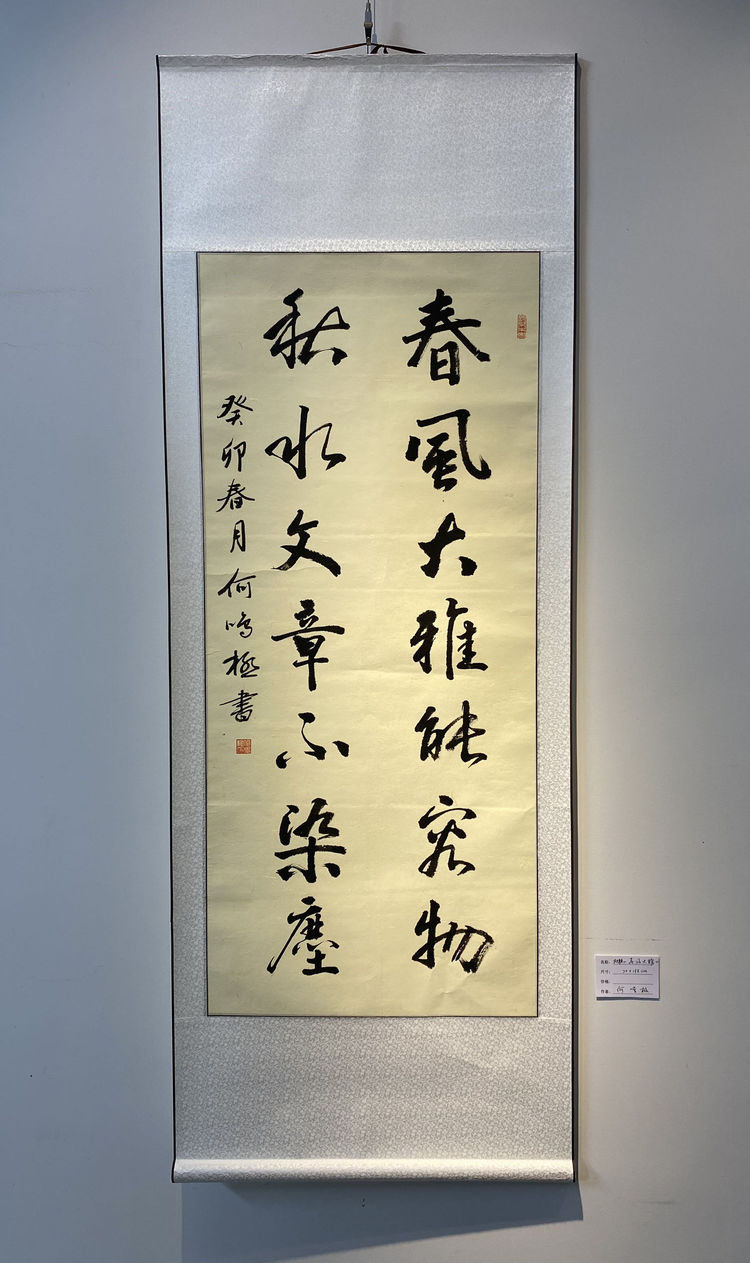 春風大雅能容物
秋水文章不染塵
癸卯春月何鳴極書
名称:
尺寸:
价格:
作者: 何鸣极